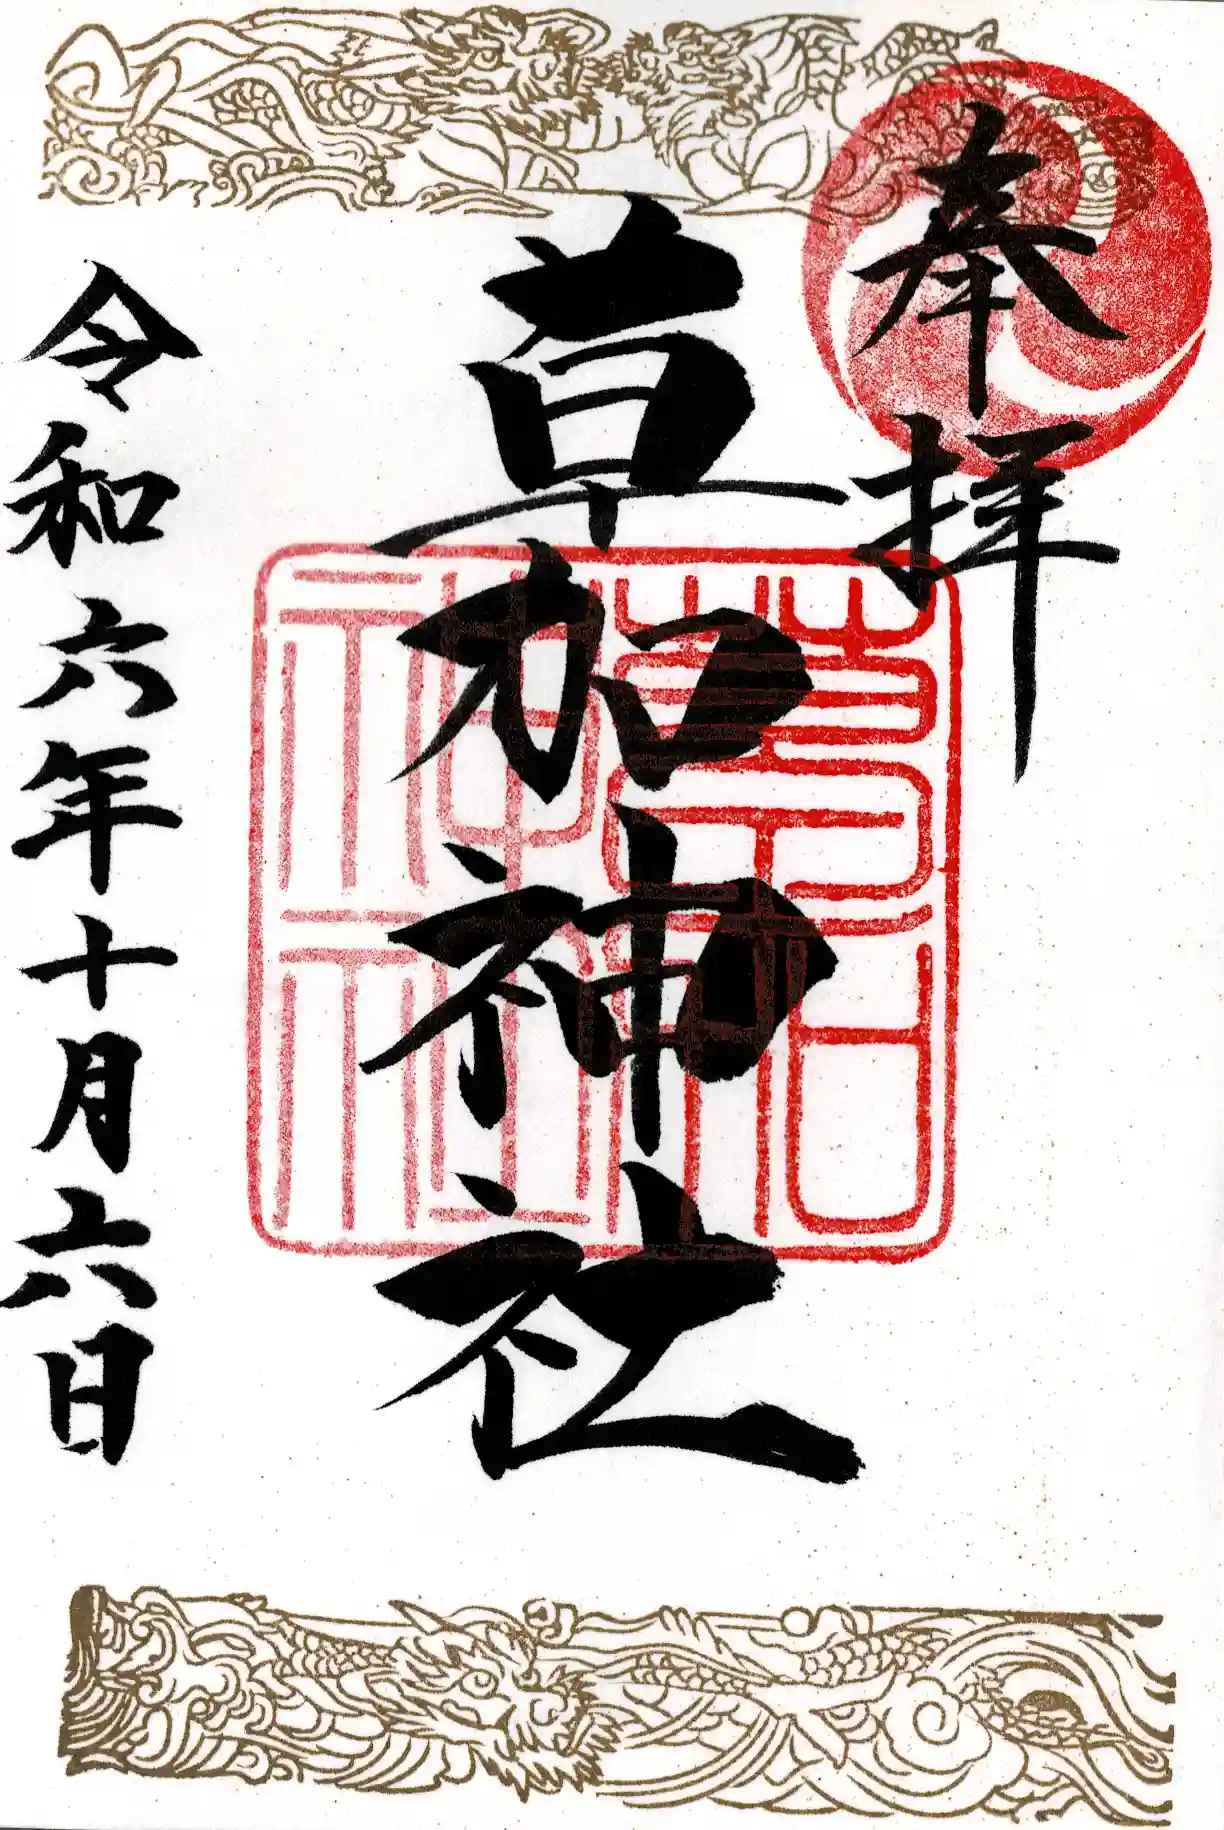 奉拝
草加神社
草加神社
令和六年十月六日